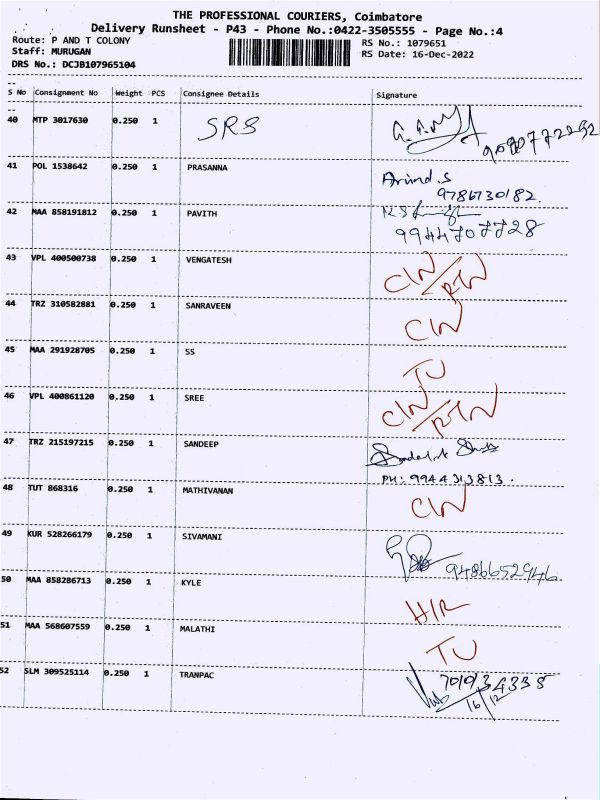 THE PROFESSIONAL COURIERS, Coimbatore
Delivery Runsheet - P43 - Phone No.:0422-3505555 - Page No.:4
Route: P AND T COLONY
RS No.: 1079651
Staff: MURUGAN
RS Date: 16-Dec-2022
DRS No.: DCJB107965104
S No Consignment No Weight PCS Consignee Details Signature
40 MTP 3017630 0.250 1 SRS
41 POL 1538642 0.250 1 PRASANNA Arvind.S
9786730182.
42 MAA 858191812 0.250 1 PAVITH
9944707728
43 VPL 400500738 0.250 1 VENGATESH CIN/RTN
44 TRZ 310582881 0.250 1 SANRAVEEN CIN
45 MAA 291928705 0.250 1 SS TU
46 VPL 400861120 0.250 1 SREE CIN/RTN
47 TRZ 215197215 0.250 1 SANDEEP
PH: 9944313813.
48 TUT 868316 0.250 1 MATHIVANAN CIN
49 KUR 528266179 0.250 1 SIVAMANI 9486652946.
50 MAA 858286713 0.250 1 KYLE H/R
51 MAA 568607559 0.250 1 MALATHI TU
52 SLM 309525114 0.250 1 TRANPAC 7010134335
16/12